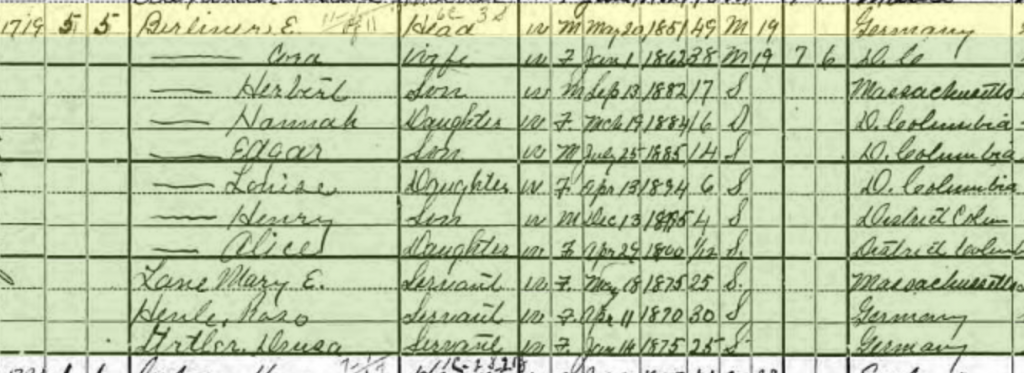 1719 5 5 Berliner, E. Head W M May 20 1851 49 M 19 Germany
—— Cora Wife W F Jan 1 1862 38 M 19 7 6 D. C
—— Herbert Son W M Sep 13 1882 17 S Massachusetts
—— Hannah Daughter W F Mch 19 1884 16 S D. Columbia
—— Edgar Son W M July 25 1885 14 S D. Columbia
—— Louise Daughter W F Apr 13 1894 6 S D. Columbia
—— Henry Son W M Dec 13 1895 4 S District Colum
—— Alice Daughter W F Apr 29 1900 1/12 S. District Columb
Lane Mary E. Servant W F May 18 1875 25 S. Massachusetts
Henle, Servant W F. Apr 11 1870 30 S Germany
Servant W F Jan 14 1875 25 S Germany